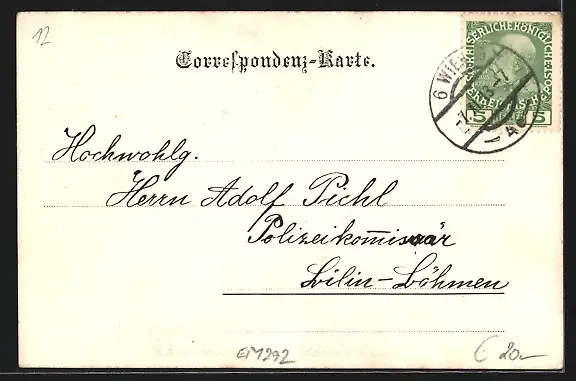 12
Correspondenz-Karte.
KAISERLICHE KÖNIGLICHE ÖSTERR
5 5
6 WIEN
Hochwohlg.
Herrn Adolf Pichl
Polizeikommissär
Bilin-Böhmen
EM292
20.-